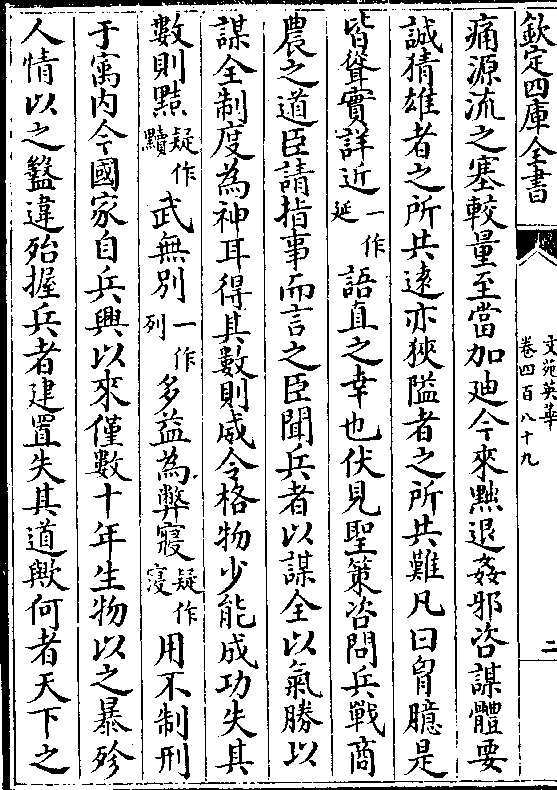 欽定四庫全書
文苑英華
卷四百八十九
二
痛源流之塞較量至當加廸今來㸃退姦邪咨謀體要
誠猜雄者之所共逺亦狹隘者之所共難凡曰胷臆是
皆聳實詳近一作延語直之幸也伏見聖策咨問兵戰商
農之道臣請指事而言之臣聞兵者以謀全以氣勝以
謀全制度為神耳得其數則威令格物少能成功失其
數則㸃疑作黷武無别一作列多益為弊寢疑作寖用不制刑
于寓内今國家自兵興以來僅數十年生物以之暴殄
人情以之盭違殆握兵者建置失其道歟何者天下之